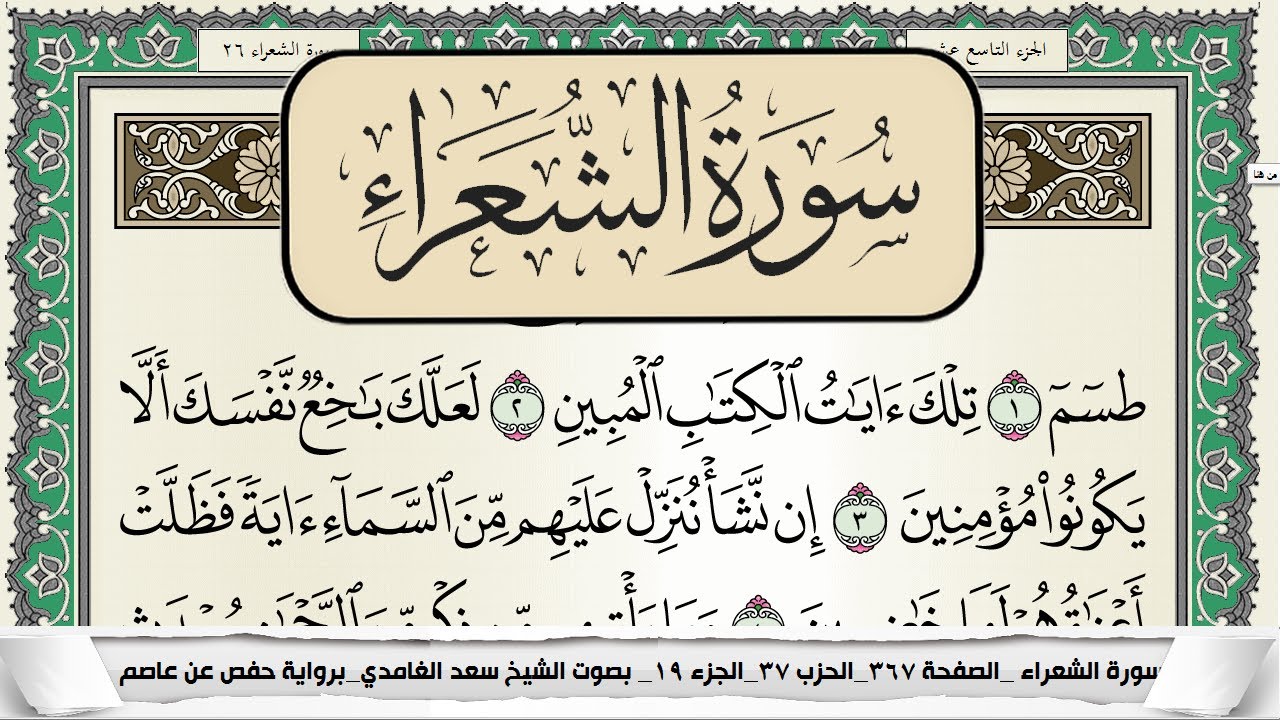 الجزء التاسع عشر
سورة الشعراء ٢٦
سُورَةُ الشُّعَرَاءِ
من هنا
طسٓمٓ ١ تِلۡكَ ءَايَٰتُ ٱلۡكِتَٰبِ ٱلۡمُبِينِ ٢ لَعَلَّكَ بَٰخِعٞ نَّفۡسَكَ أَلَّا
يَكُونُواْ مُؤۡمِنِينَ ٣ إِن نَّشَأۡ نُنَزِّلۡ عَلَيۡهِم مِّنَ ٱلسَّمَآءِ ءَايَةٗ فَظَلَّتۡ
سورة الشعراء _الصفحة ٣٦٧_الحزب ٣٧_الجزء ١٩_ بصوت الشيخ سعد الغامدي_برواية حفص عن عاصم